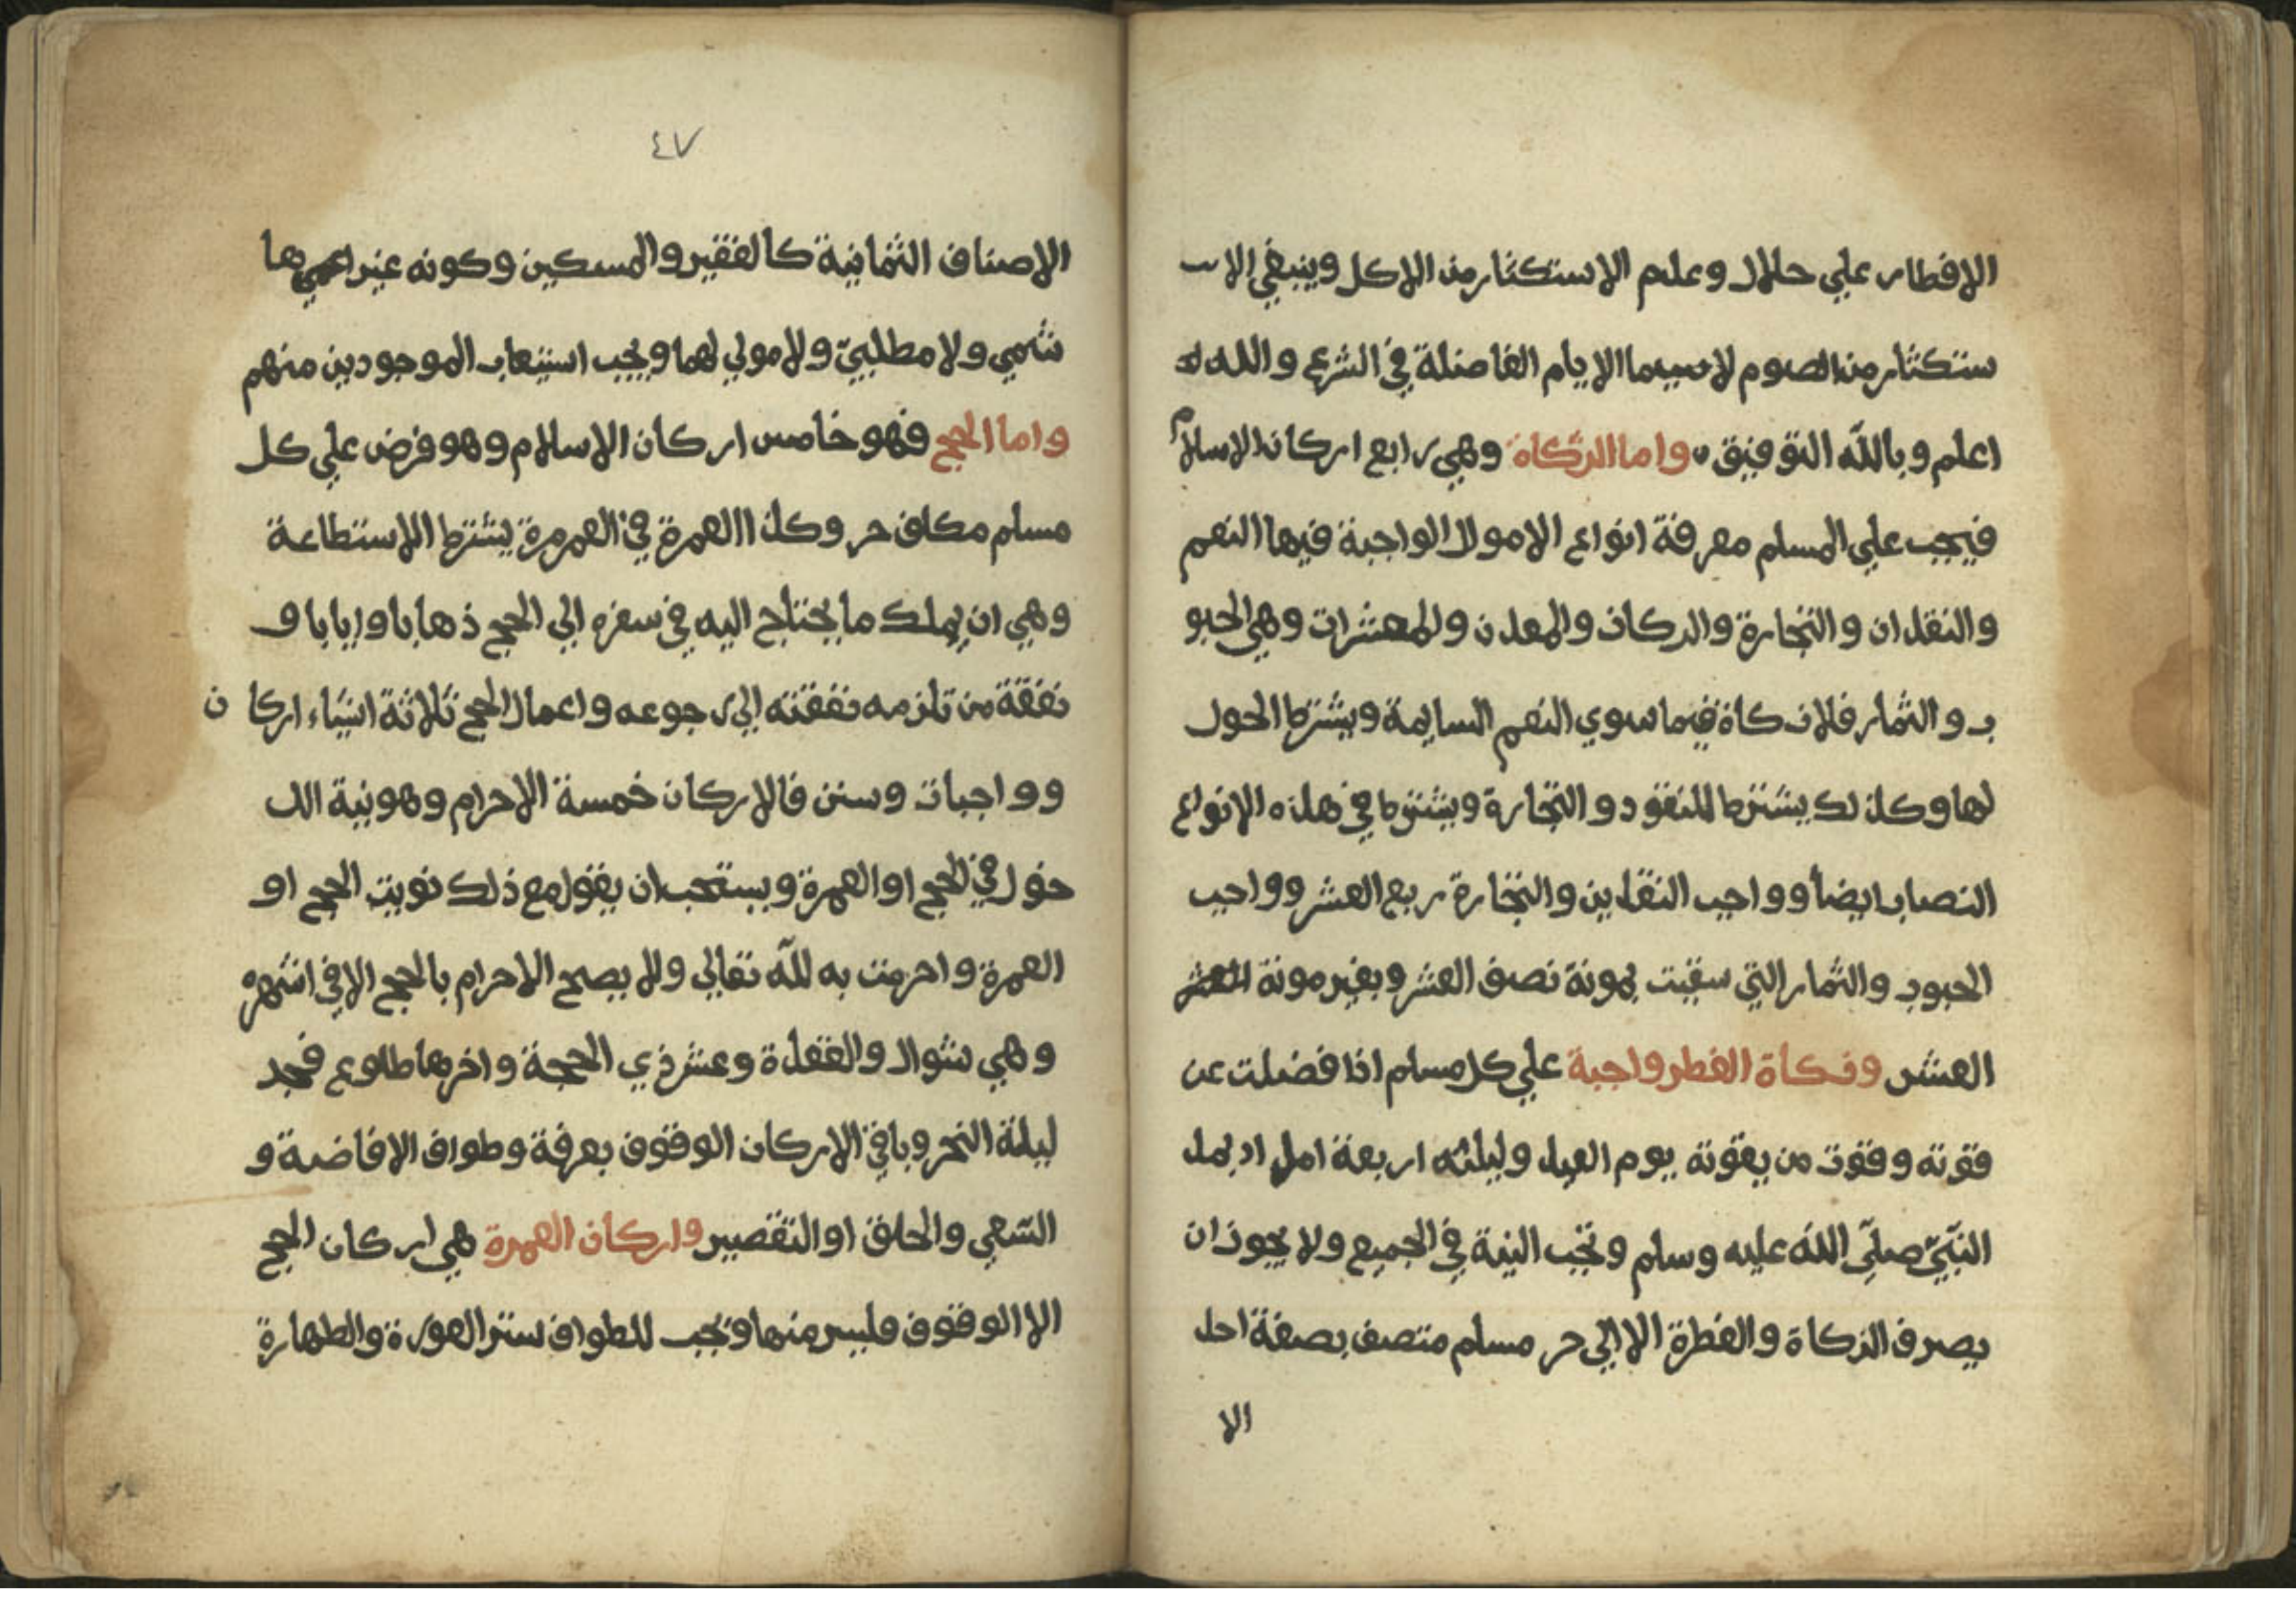 الافطار علي حلال وعدم الاستكثار من الاكل وينبغي الاس
ستكثار من الصوم لاسيما الايام الفاضلة في الشرع والله
اعلم وبالله التوفيق واما الزكاة وهي رابع اركان الاسلام
فيجب علي المسلم معرفة انواع الاموال الواجبة فيها النعم
والنقدان والتجارة والركاز والمعدن والمعشرات وهي الحبو
ب والثمار فلا زكاة فيما سوي النعم السايمة ويشترط الحول
لها وكذلك يشترط للنقود والتجارة ويشترط في هذه الانواع
النصاب ايضا وواجب النقدين والتجارة ربع العشر وواجب
الحبوب والثمار التي سقيت بمونة نصف العشر وبغير مونة
العشر وزكاة الفطر واجبة علي كل مسلم اذا فضلت عن
قوته وقوت من يقوته يوم العيد وليلته اربعة امداد بمد
النبيّ صلّي الله عليه وسلم وتجب النية في الجميع ولا يجوز ان
يصرف الزكاة والفطرة الا الي حر مسلم متصف بصفة احد
الا
٤٧
الاصناف الثمانية كالفقير والمسكين وكونه غير ها
شمي ولا مطلبيّ ولا مولي لهما ويجب استيعاب الموجودين منهم
واما الحج فهو خامس اركان الاسلام وهو فرض علي كل
مسلم مكلف حر وكذا العمرة في العمر مرة يشترط الاستطاعة
وهي ان يملك ما يحتاج اليه في سفره الي الحج ذهابا وايابا و
نفقة من تلزمه نفقته الي رجوعه واعمال الحج ثلاثة اشياء اركا ن
وواجبات وسنن فالاركان خمسة الاحرام وهو نية الد
خول في الحج او العمرة ويستحب ان يقول مع ذلك نويت الحج او
العمرة واحرمت به لله تعالي ولا يصح الاحرام بالحج الا في اشهره
وهي شوال والقعدة وعشر ذي الحجة واخرها طلوع فجر
ليلة النحر وباقي الاركان الوقوف بعرفة وطواف الافاضة و
السّعي والحلق او التقصير واركان العمرة هي اركان الحج
الا الوقوف فليس منها وتجب للطواف ستر العورة والطهارة